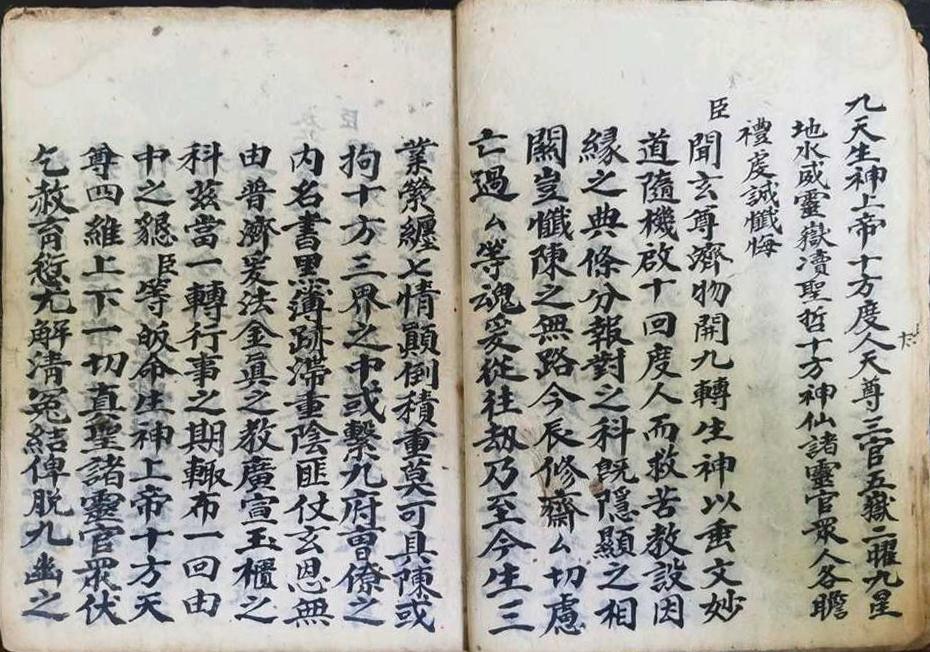 九天生神上帝十方度人天尊三官五嶽二曜九星
地水威靈嶽瀆聖哲十方神仙諸靈官眾人各瞻
禮虔誠懺悔
臣聞玄尊濟物開九轉生神以垂文妙
道隨機啟十回度人而救苦教設因
緣之典條分報對之科既隱顯之相
關豈懺陳之無路今辰修齋厶切慮
亡過厶等魂爰從往劫乃至今生三
業縈纏七情顛倒積重莫可具陳或
拘十方三界之中或繫九府曹僚之
內名書黑簿跡滯重陰匪仗玄恩無
由普濟爰法金真之教廣宣玉櫃之
科茲當一轉行事之期輒布一回由
中之懇臣等皈命生神上帝十方天
尊四維上下一切真聖諸靈官眾伏
乞赦宥愆尤解清冤結俾脫九幽之